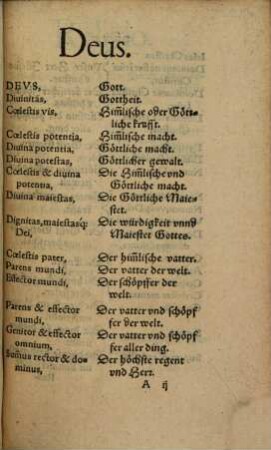 Deus.
DEVS, Gott.
Diuinitas, Gottheit.
Cœlestis vis, Himlische oder Gött⸗
liche krafft.
Cœlestis potentia, Himlische macht.
Diuina potentia, Göttliche macht.
Diuina potestas, Göttlicher gewalt.
Cœlestis & diuina Die Himlische vnd
potentia, Göttliche macht.
Diuina maiestas, Die Göttliche Maie⸗
stet.
Dignitas, maiestasq; Die würdigkeit vnnd
Dei, Maiestet Gottes.
Cœlestis pater, Der himlische vatter.
Parens mundi, Der vatter der welt.
Effector mundi, Der schöpffer der
welt.
Parens & effector Der vatter vnd schöpf
mundi, fer der welt.
Genitor & effector Der vatter vnd schöpf
omnium, fer aller ding.
Sum̄us rector & do- Der höchste regent
minus, vnd Herr.
A ij